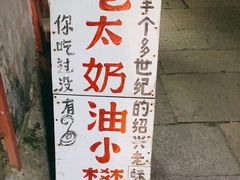 半个多世纪的绍兴老味
老太奶油小攀
你吃过没有